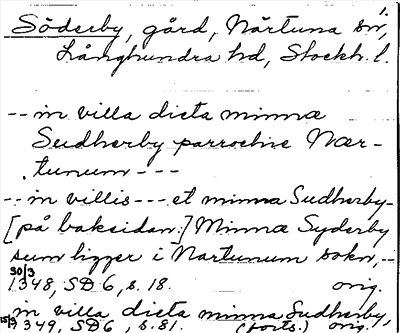 1.
Söderby, gård, Närtuna sn,
Långhundra hd, Stockh. l.
-- in villa dicta minnæ
Sudherby parrochie Nær-
tunum ---
-- in villis --- et minna Sudherby-
[på baksidan:] Minnæ Syderby
sum ligger i Nærtunum sokn,--
30/3
1348, SD 6, s. 18. orig.
in villa dicta minna Sudherby,
15/9 1349, SD 6, s. 81. (forts.) orig.